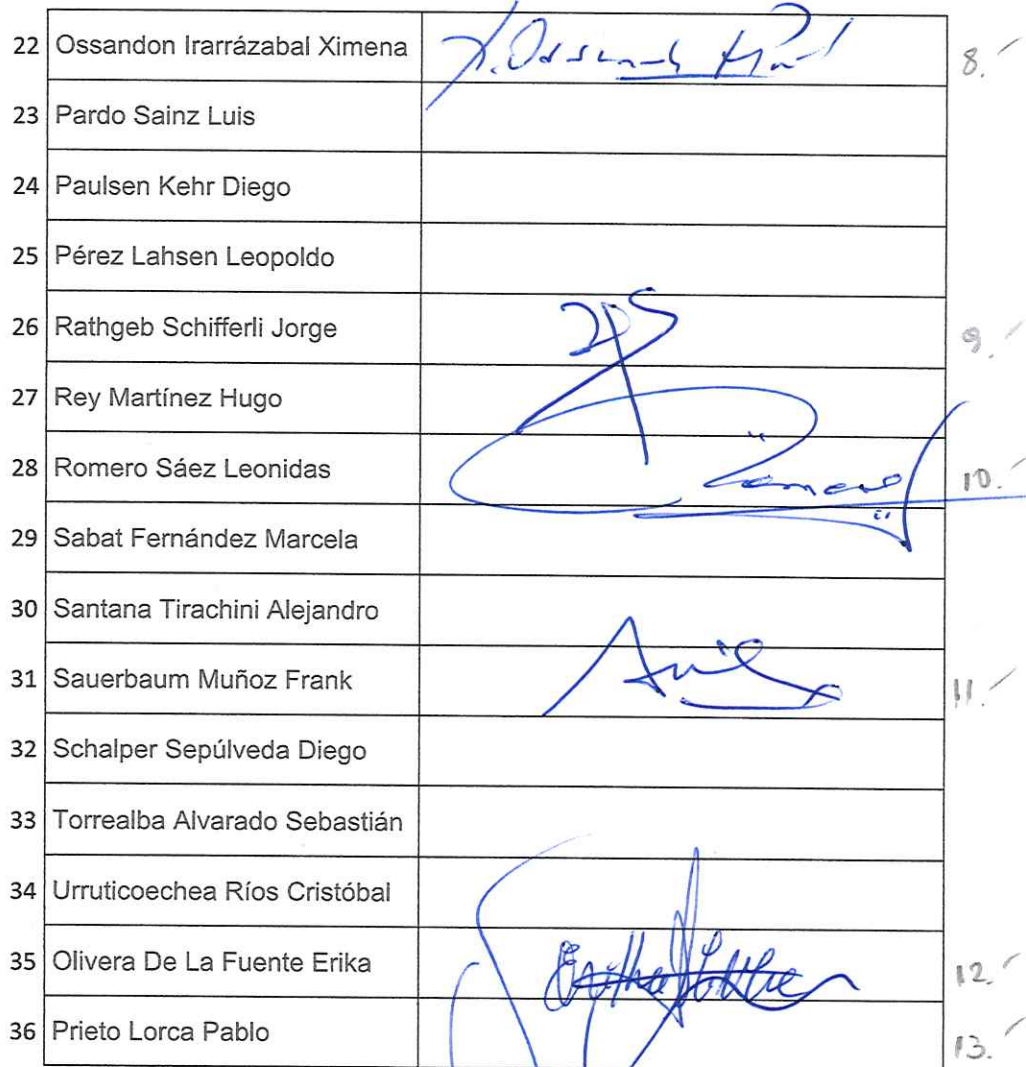 22 Ossandon Irarrázabal Ximena 8.
23 Pardo Sainz Luis
24 Paulsen Kehr Diego
25 Pérez Lahsen Leopoldo
26 Rathgeb Schifferli Jorge 9.
27 Rey Martínez Hugo
28 Romero Sáez Leonidas 10.
29 Sabat Fernández Marcela
30 Santana Tirachini Alejandro
31 Sauerbaum Muñoz Frank 11.
32 Schalper Sepúlveda Diego
33 Torrealba Alvarado Sebastián
34 Urruticoechea Ríos Cristóbal
35 Olivera De La Fuente Erika 12.
36 Prieto Lorca Pablo 13.